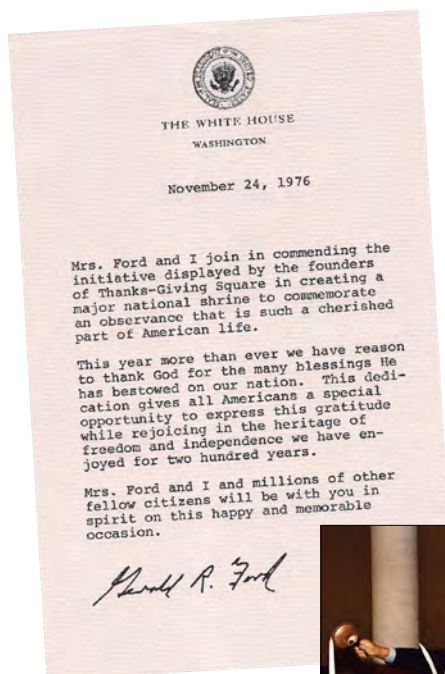 THE WHITE HOUSE
WASHINGTON
November 24, 1976
Mrs. Ford and I join in commending the
initiative displayed by the founders
of Thanks-Giving Square in creating a
major national shrine to commemorate
an observance that is such a cherished
part of American life.
This year more than ever we have reason
to thank God for the many blessings He
has bestowed on our nation. This dedi-
cation gives all Americans a special
opportunity to express this gratitude
while rejoicing in the heritage of
freedom and independence we have en-
joyed for two hundred years.
Mrs. Ford and I and millions of other
fellow citizens will be with you in
spirit on this happy and memorable
occasion.
Gerald R. Ford